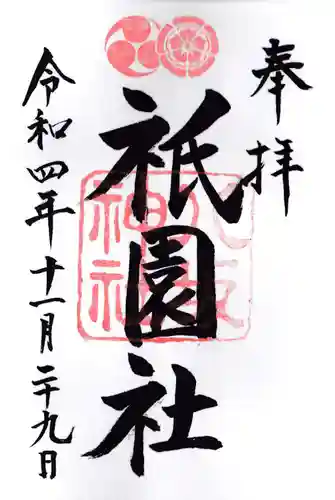 奉拝
祇園社
令和四年十一月二十九日